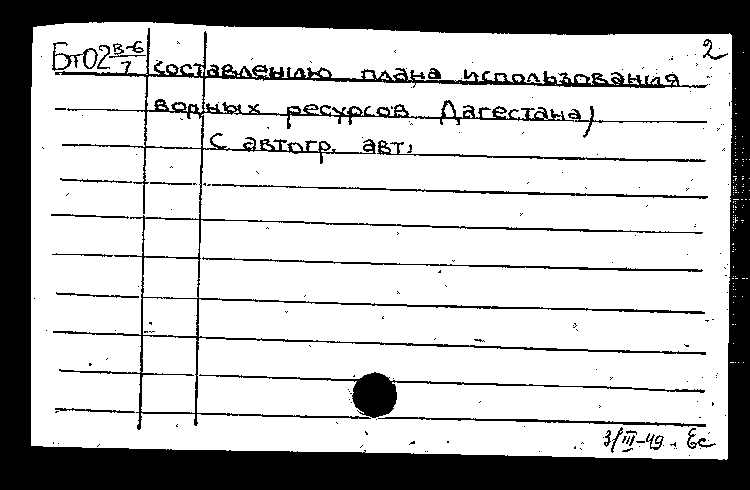 2
БтО2 в-6/7 составлению плана использования
водных ресурсов Дагестана)
С автогр. авт.
3/III-49. Ес